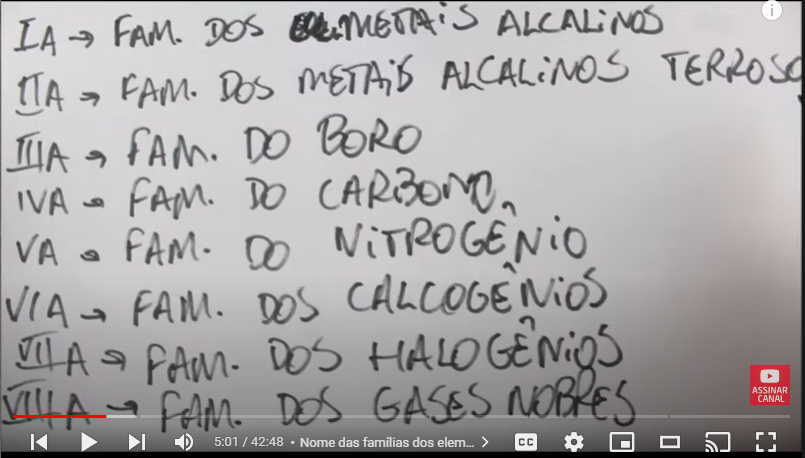 IA → FAM. DOS METAIS ALCALINOS
IIA → FAM. DOS METAIS ALCALINOS TERROSO
IIIA → FAM. DO BORO
IVA → FAM. DO CARBONO
VA → FAM. DO NITROGÊNIO
VIA → FAM. DOS CALCOGÊNIOS
VIIA → FAM. DOS HALOGÊNIOS
VIIIA → FAM. DOS GASES NOBRES
ASSINAR
CANAL
5:01 / 42:48 • Nome das famílias dos elem... >
CC